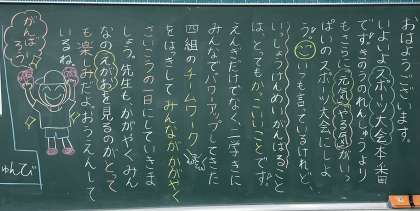 おはようございます。
いよいよスポーツ大会本番
ですね。きのうのれんしゅうより
もさらに、元気、やる気がいっ
ぱいのスポーツ大会にしよ
う。いつも言っているけれど、
いっしょうけんめいがんばること
は、とってもかっこいいことです。
えんぎだけでなく、一学きに
みんなでパワーアップしてきた
四組のチームワーク
をはっきして、みんながかがやく
さいこうの一日にしていきま
しょう。先生も、かがやくみん
なのえがおを見るのがとって
も楽しみだよ。おうえんして
いるね。
がんばろう!
じゅんび